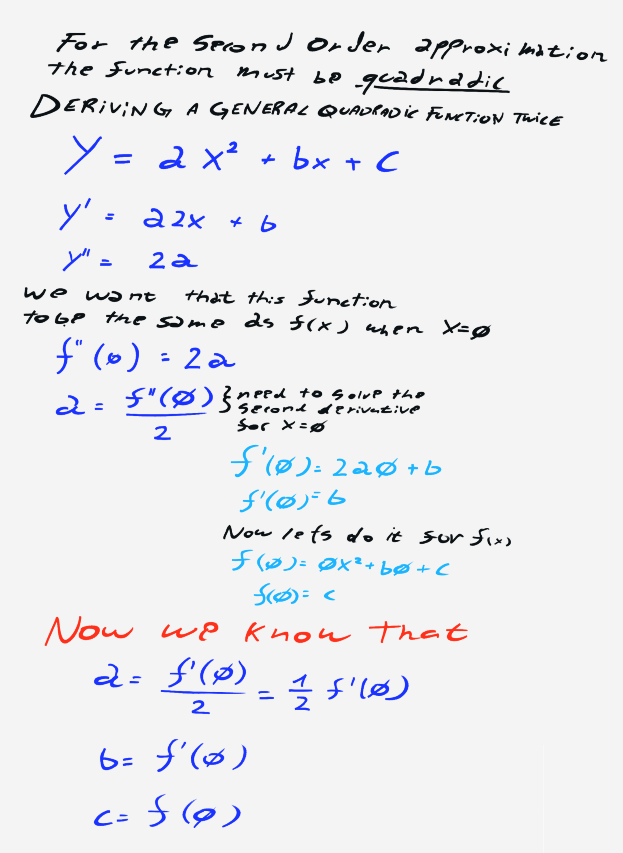 For the second order approximation
the function must be quadradic
DERIVING A GENERAL QUADRADIC FUNCTION TWICE
Y = ax² + bx + c
y' = a2x + b
y" = 2a
we want that this function
to be the same as f(x) when x=ø
f"(ø) = 2a
a = f"(ø)/2 } need to solve the
second derivative
for x=ø
f'(ø)= 2aø + b
f'(ø)= b
Now lets do it for f(x)
f(ø)= øx² + bø + c
f(ø)= c
Now we know That
a = f'(ø)/2 = 1/2 f'(ø)
b= f'(ø)
c= f(ø)